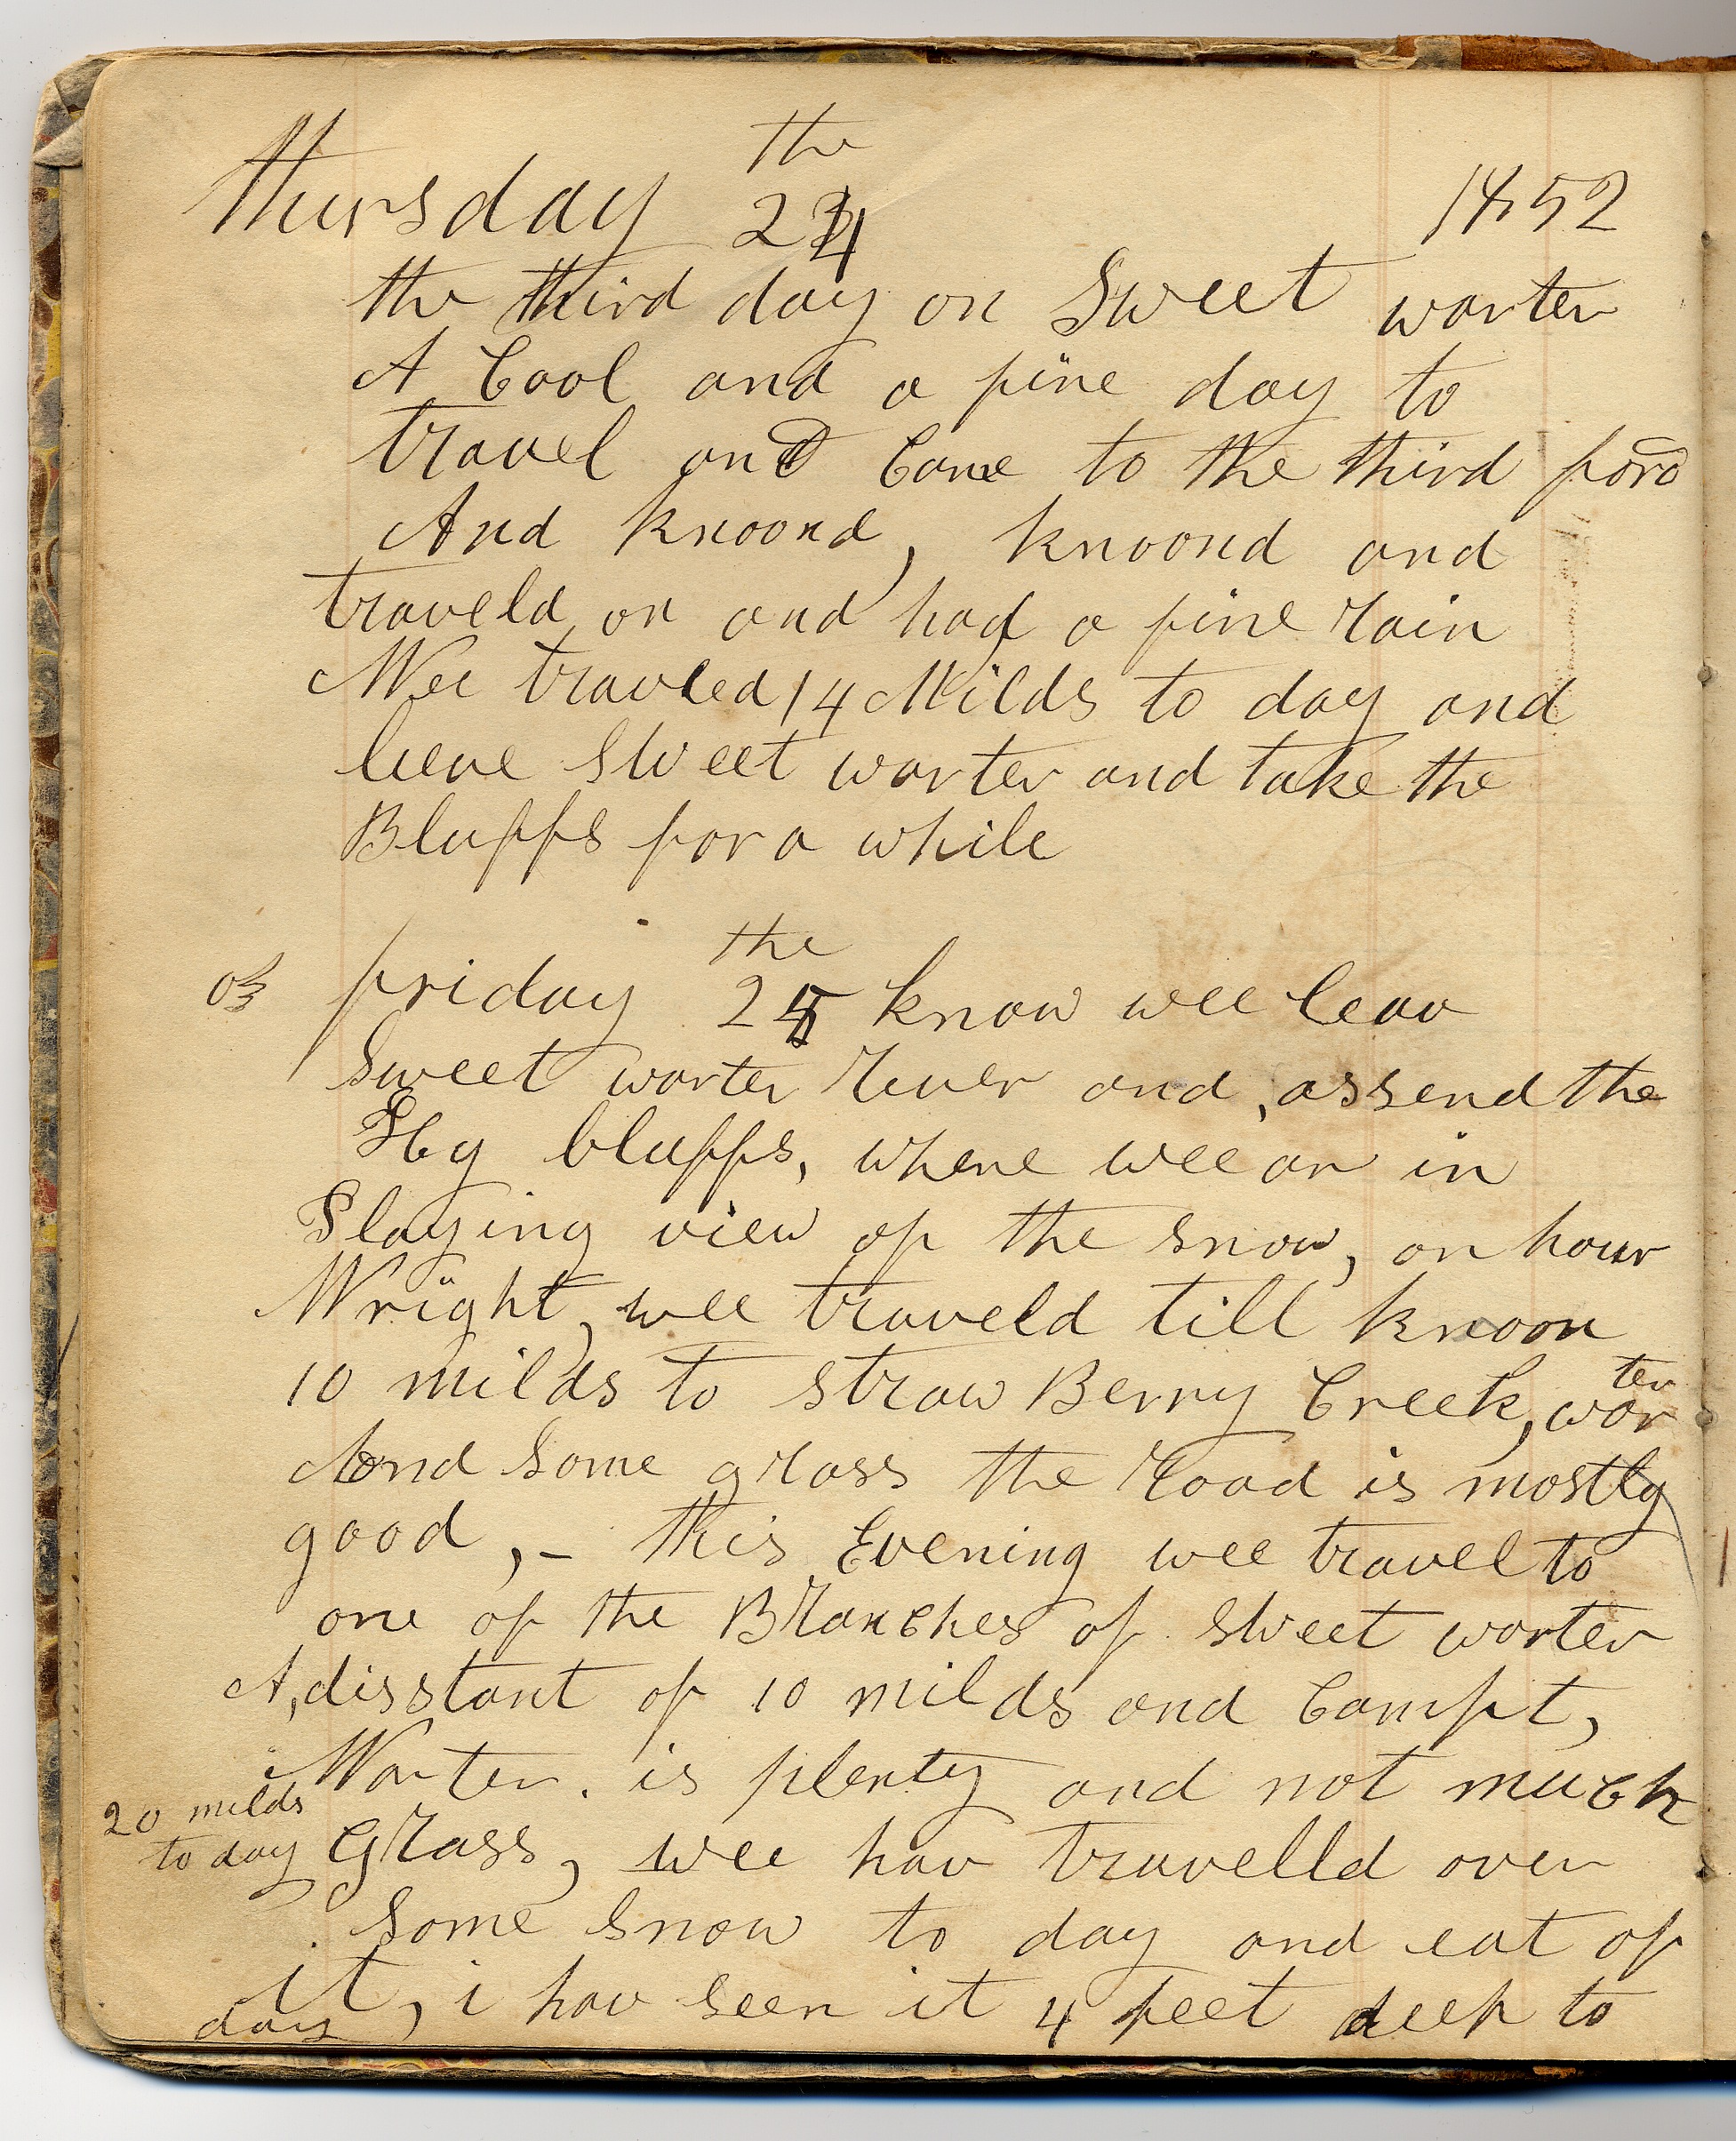 Thursday the 24 1852
the third day on Sweet worter
A Cool and a fine day to
travel and Came to the third ford
And knoond, knoond and
traveld on and had a fine rain
Wee travled 14 Milds to day and
leeve Sweet worter and take the
Bluffs for a while
friday the 25 know wee leav
Sweet worter River and, assend the
bluffs, where wee ar in
Playing view of the snow, on hour
Wright, wee traveld till knoon
10 milds to straw Berry Creek, worter
And Some grass the road is mostly
good,- this Evening wee travel to
one of the Branches of Sweet worter
A, disstant of 10 milds and Campt,
Worter. is plenty and not much
20 milds
to day
Grass, wee hav travelld over
Some Snow to day and eat of
it, i hav seen it 4 feet deep to
day